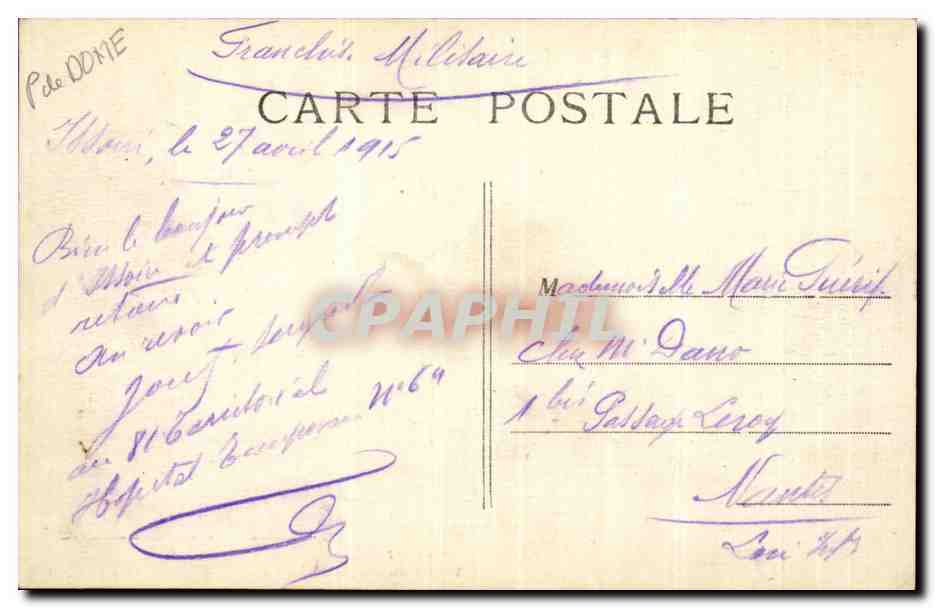 P de DOME
Franchise Militaire
CARTE POSTALE
Issoire, le 27 avril 1915
Bien le bonjour
d'Issoire et prompt
retour
au revoir
au 81 territorial
Hopital temporaire N° 69
Mademoiselle Marie
chez Mr Dano
1 bis Passage Leroy
Nantes
Loire Infre
CPAPHIL